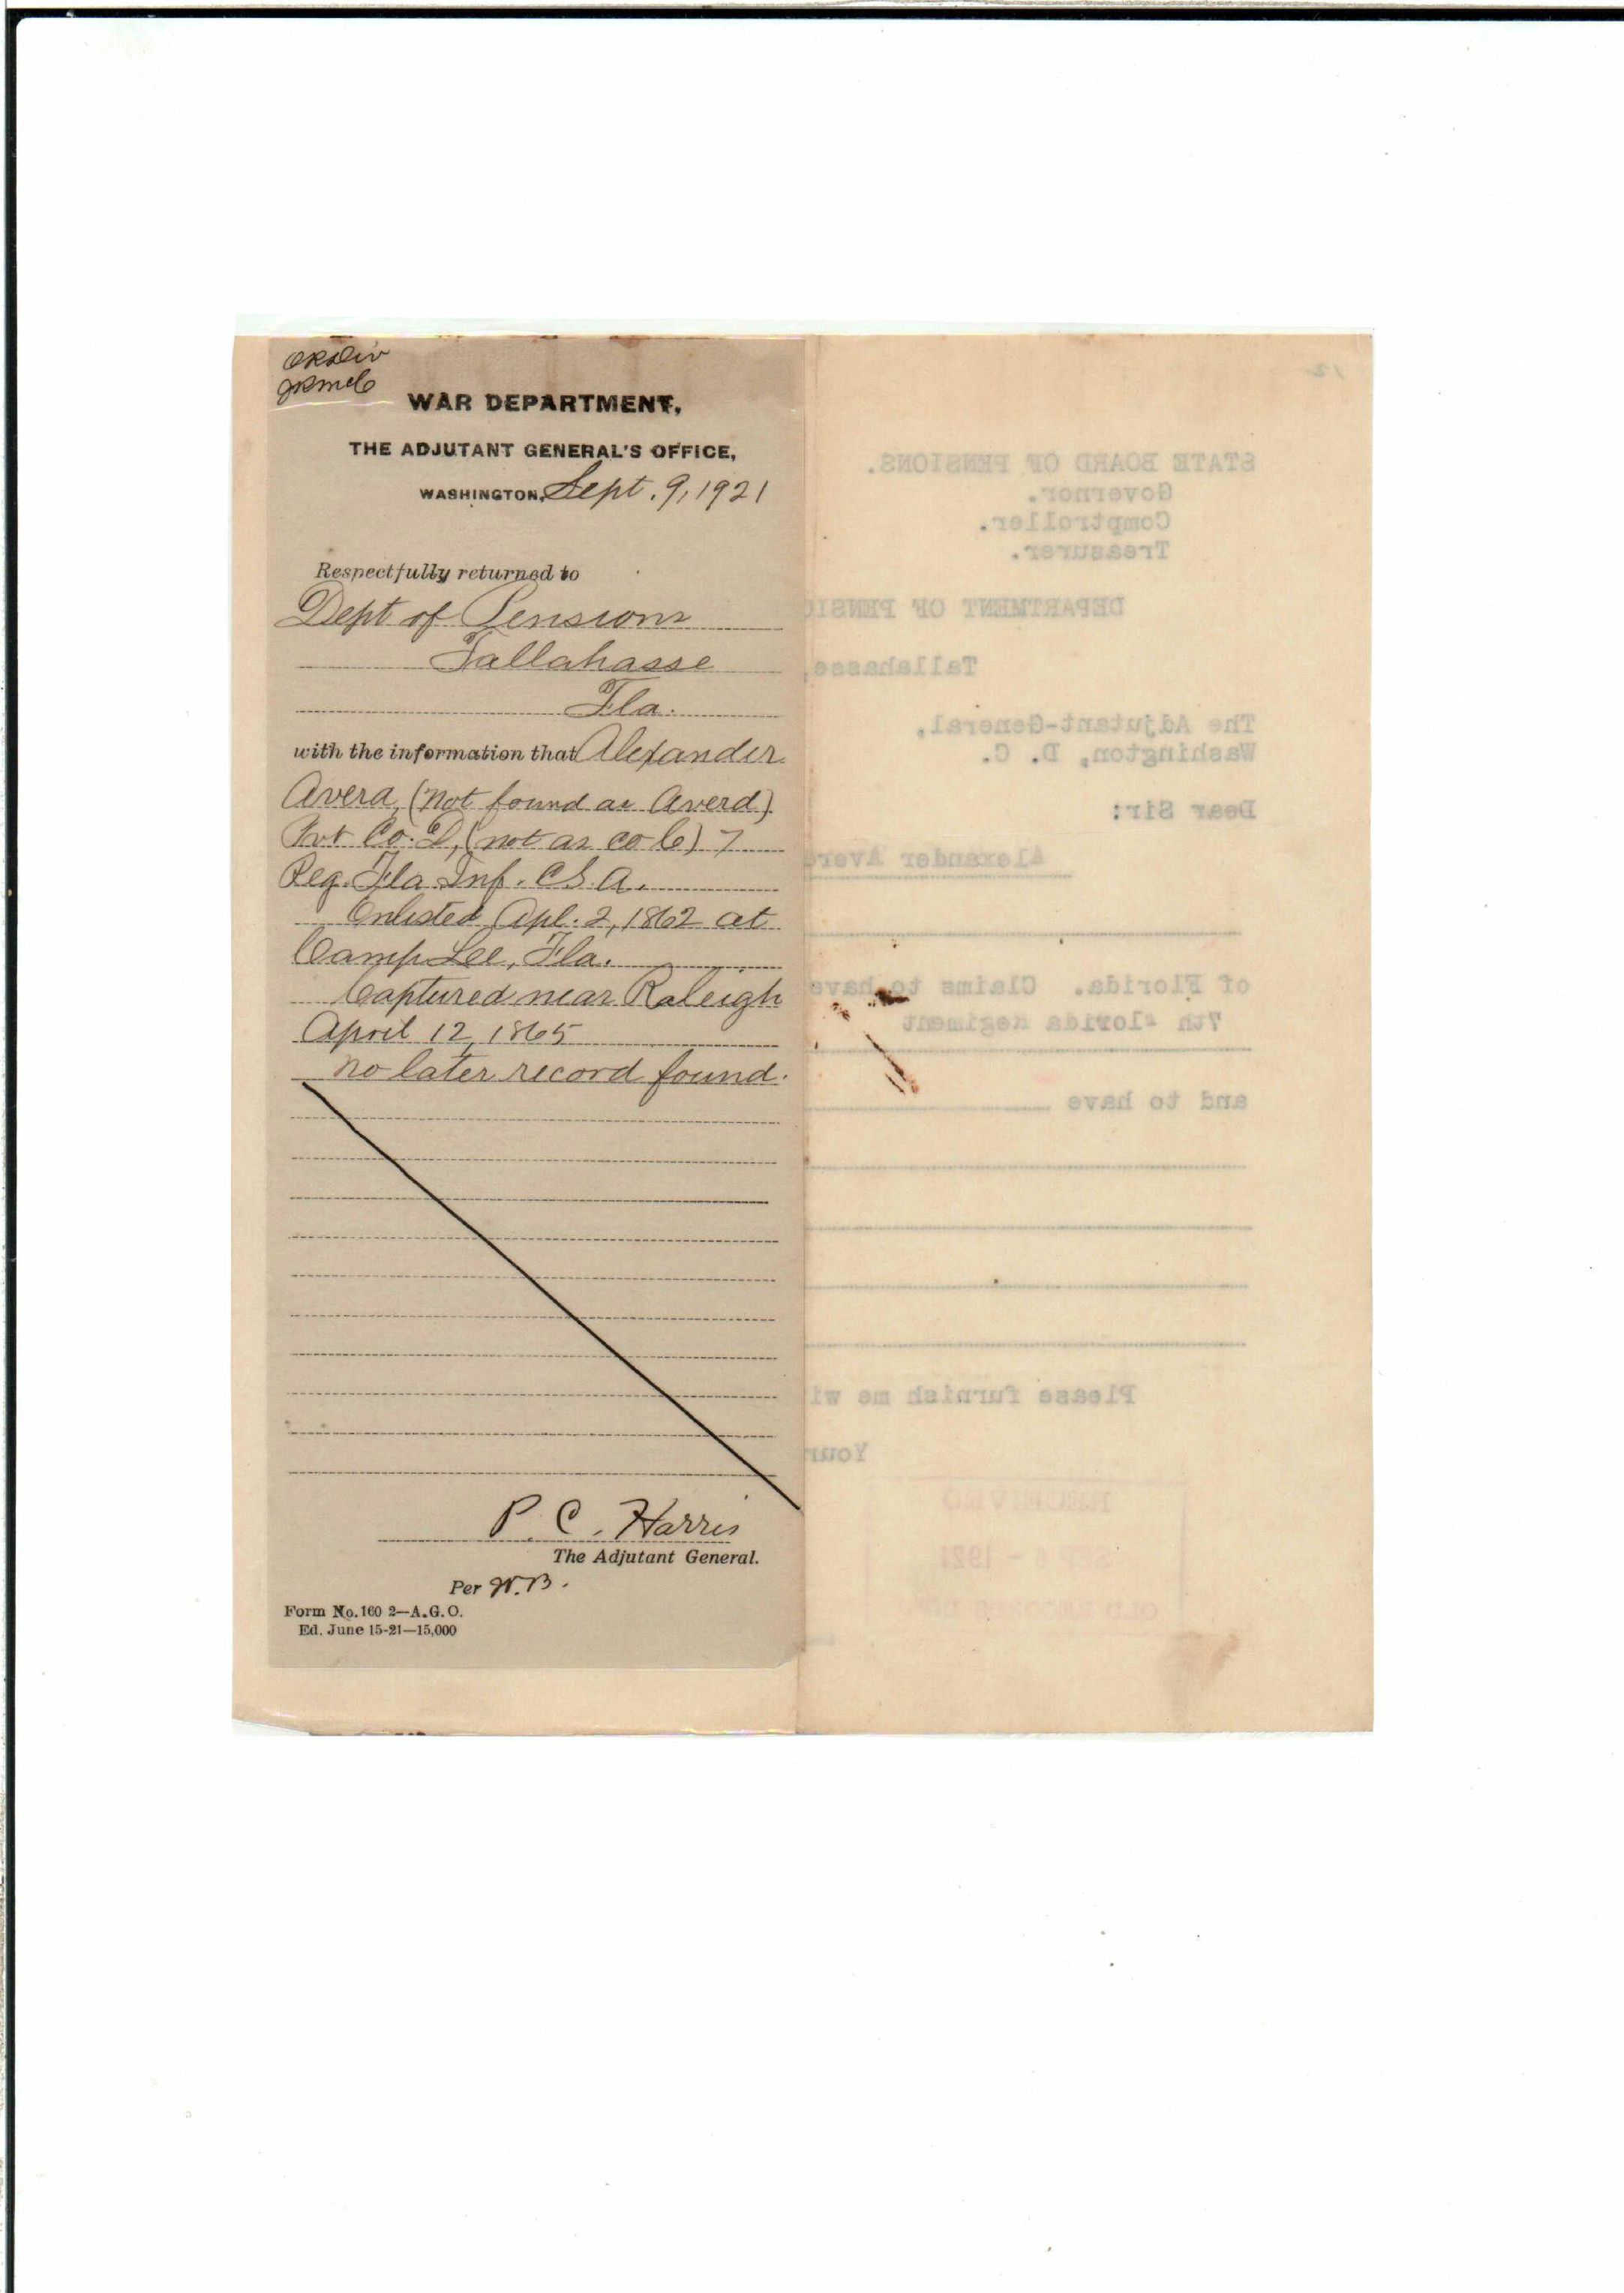 WAR DEPARTMENT,
THE ADJUTANT GENERAL'S OFFICE,
WASHINGTON, Sept. 9, 1921
Respectfully returned to
Dept of Pensions
Tallahasse
Fla.
with the information that Alexander
Avera, (not found as Averd)
Pvt Co. D, (not as co C) 7
Reg. Fla Inf. C.S.A.
Enlisted Apl. 2, 1862 at
Camp Lee, Fla.
Captured near Raleigh
April 12, 1865
no later record found.
P. C. Harris
The Adjutant General.
Per W.B.
Form No. 160 2—A.G.O.
Ed. June 15-21—15,000
12
STATE BOARD OF PENSIONS.
Governor.
Comptroller.
Treasurer.
DEPARTMENT OF PENSIO
Tallahasse,
The Adjutant-General,
Washington, D. C.
Dear Sir:
Alexander Aver
of Florida. Claims to have
7th Florida Regiment
and to have
Please furnish me wi
Your
RECEIVED
1921